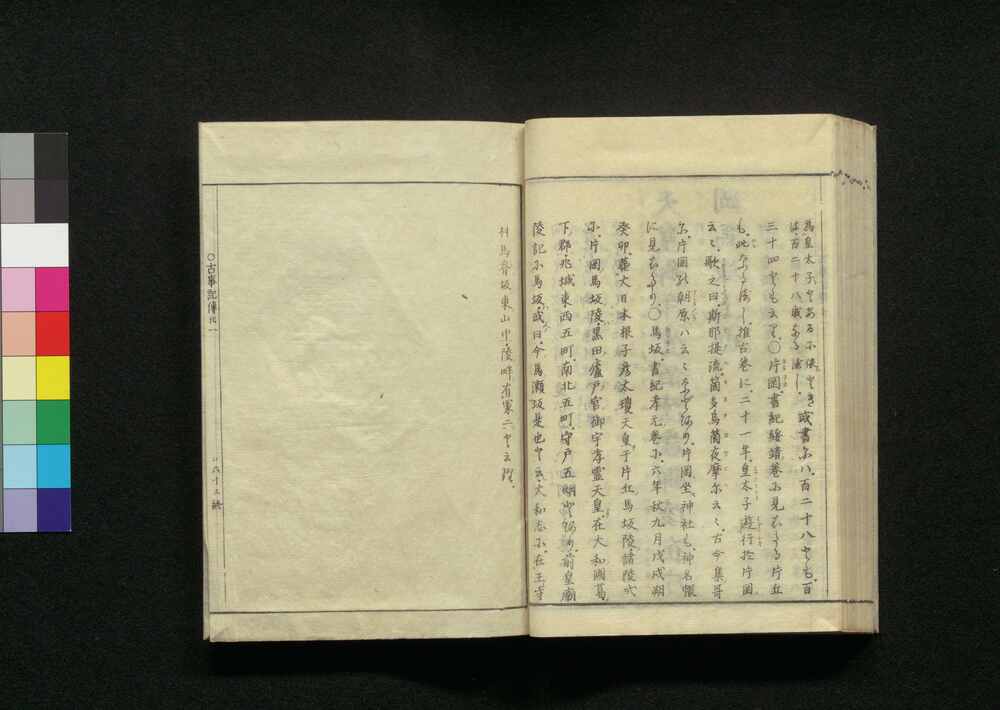 為皇太子とある小使とき或書には百二十八とも百
は百二十八歳なる[べ]し
三十四とも云り〇片岡書紀綏靖巻に見えたる片丘
も此なるべし推古巻に二十一年皇太子遊行於片岡
云々歌之曰斯那提流箇多烏箇夜摩尓云々古今集哥
に片岡の朝原ハ云々などあり片岡坐神社も神名帳
に見えたり〇馬坂書紀孝元巻に六年秋九月戊戌朔
癸卯葬大日本根子彦太瓊天皇于片丘馬坂陵諸陵式
に片岡馬坂陵黒田廬戸宮御宇孝霊天皇在大和國葛
下郡兆域東西五町南北五町守戸五烟とあり前皇廟
陵記に馬坂或曰今馬瀬坂是也と云大和志に在王寺
村馬脊坂東山中陵畔有冢二と云り
〇古事記傳廿一